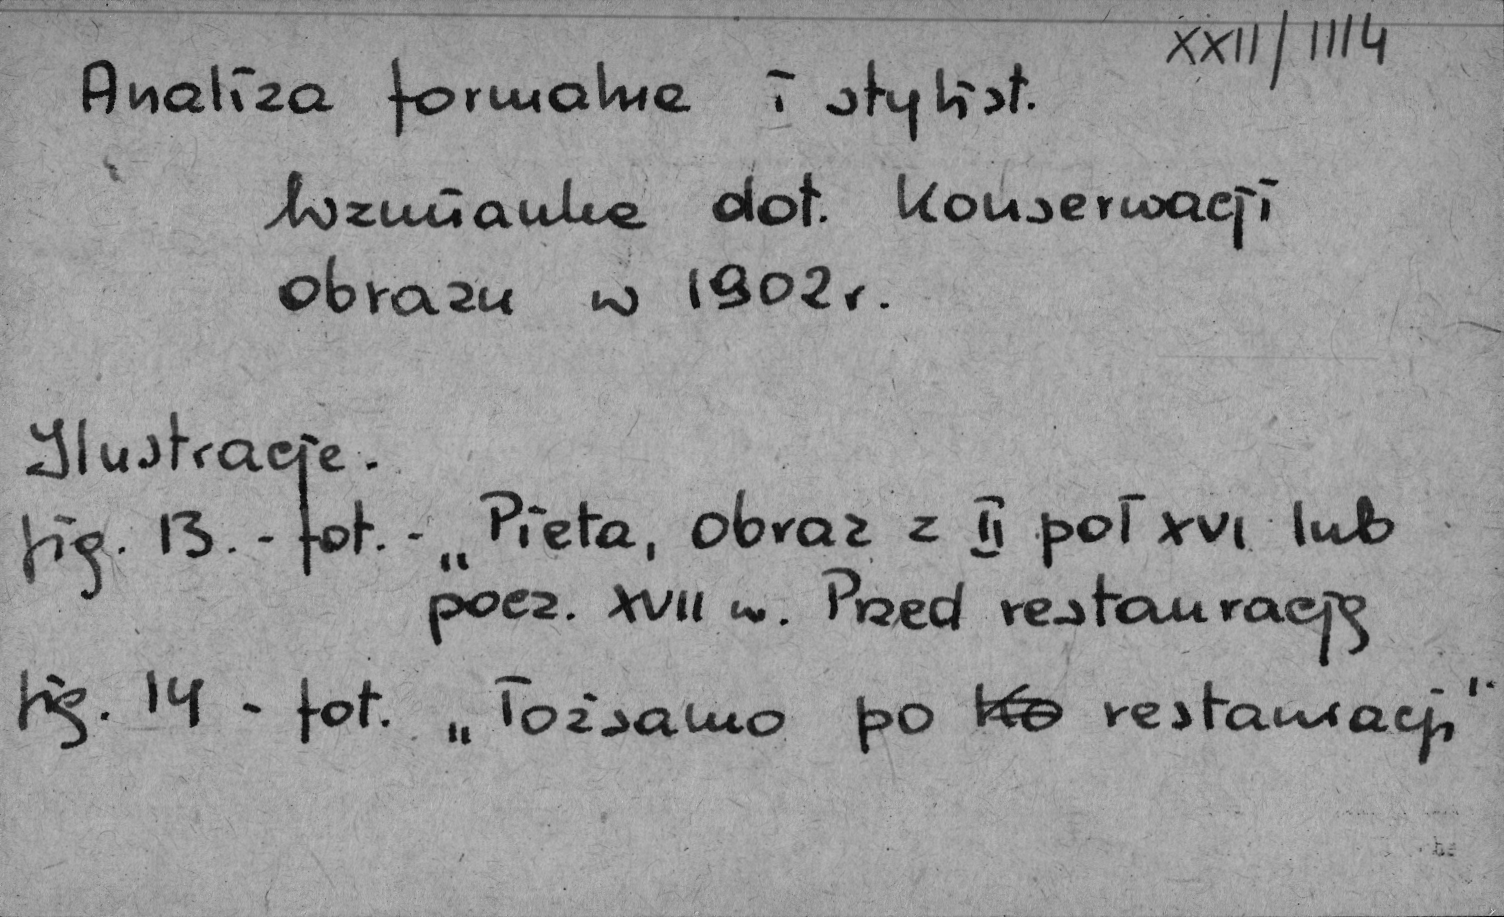 XXII/III/4
Analiza formalne i stylist.
Wzmianke dot. Konserwacji
obrazu w 1902r.
Ilustracje.
fig. 13. - fot. - „Pieta, obraz z II poł XVI lub
pocz. XVII w. Przed restauracją
fig. 14 - fot. „Tożsamo po restauracji".